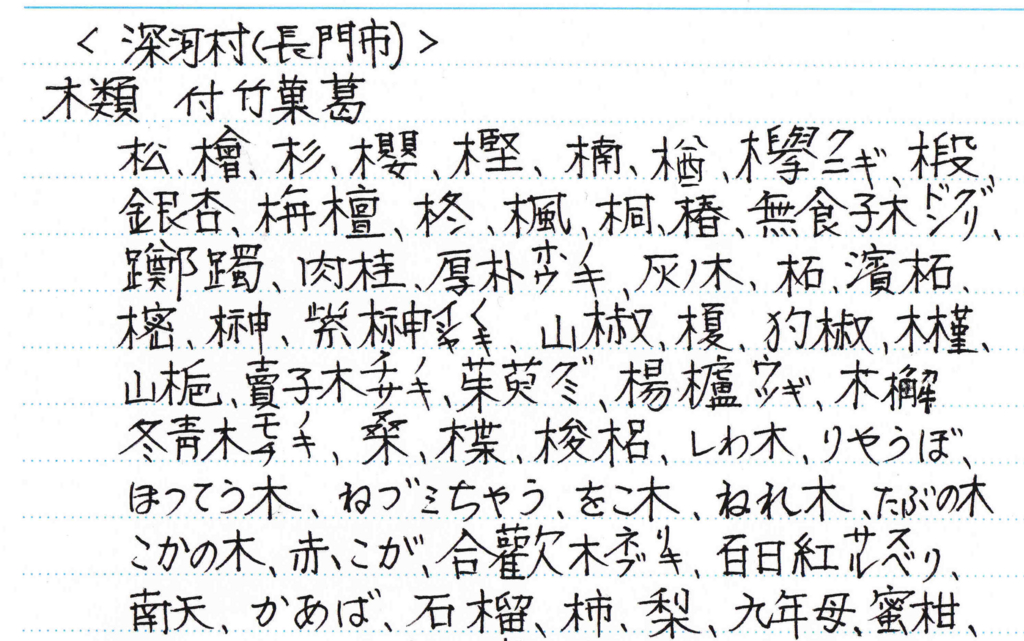 < 深河村(長門市) >
木類 付竹菓葛
松、檜、杉、櫻、樫、楠、楢、欅クニギ、椴、
銀杏、栴檀、柊、楓、桐、椿、無食子木ドングリ、
躑躅、肉桂、厚朴ホウノキ、灰ノ木、柘、濱柘、
樒、榊、紫榊イヌシャキ、山椒、榎、犳椒、木槿、
山梔、賣子木チサノキ、茱萸グミ、楊櫨ウツギ、木檞
冬青木モチノキ、桑、楪、梭梠、しわ木、りやうぼ、
ほってう木、ねづミちゃう、をこ木、ねれ木、たぶの木
こかの木、赤こが、合歡木ネブリキ、百日紅サルスベリ、
南天、かあば、石榴、柿、梨、九年母、蜜柑、